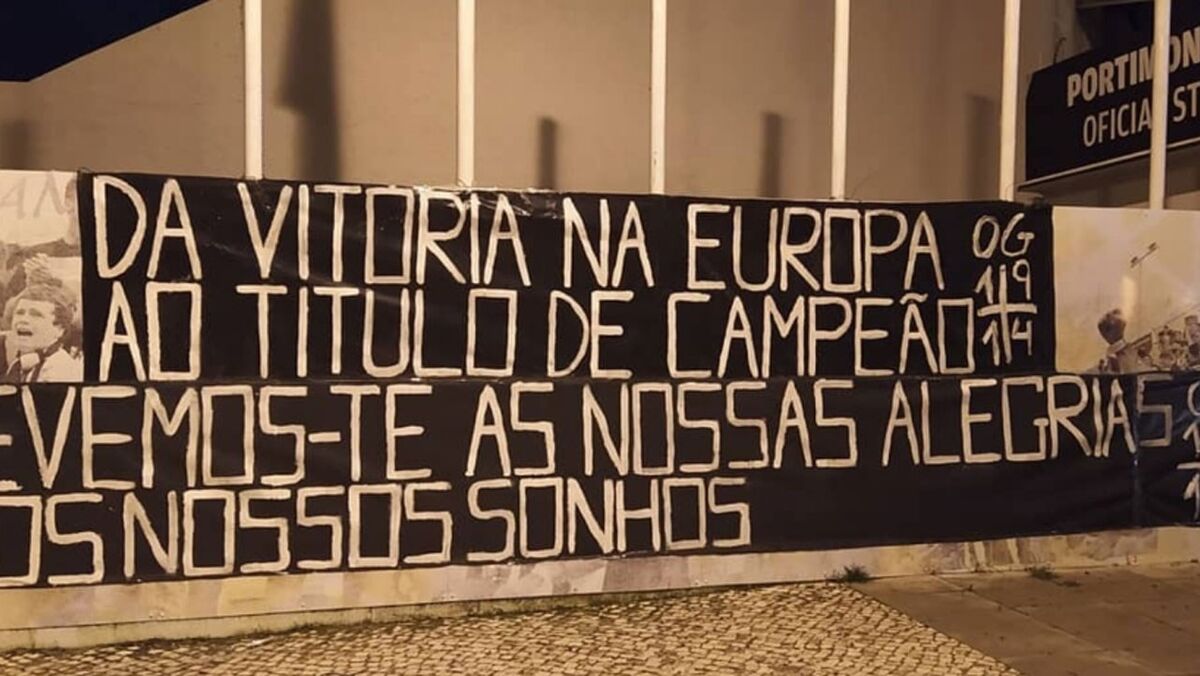 PORTIMON
OFICIAL ST
DA VITORIA NA EUROPA OG
19
AO TITULO DE CAMPEÃO 14
EVEMOS-TE AS NOSSAS ALEGRIAS
OS NOSSOS SONHOS